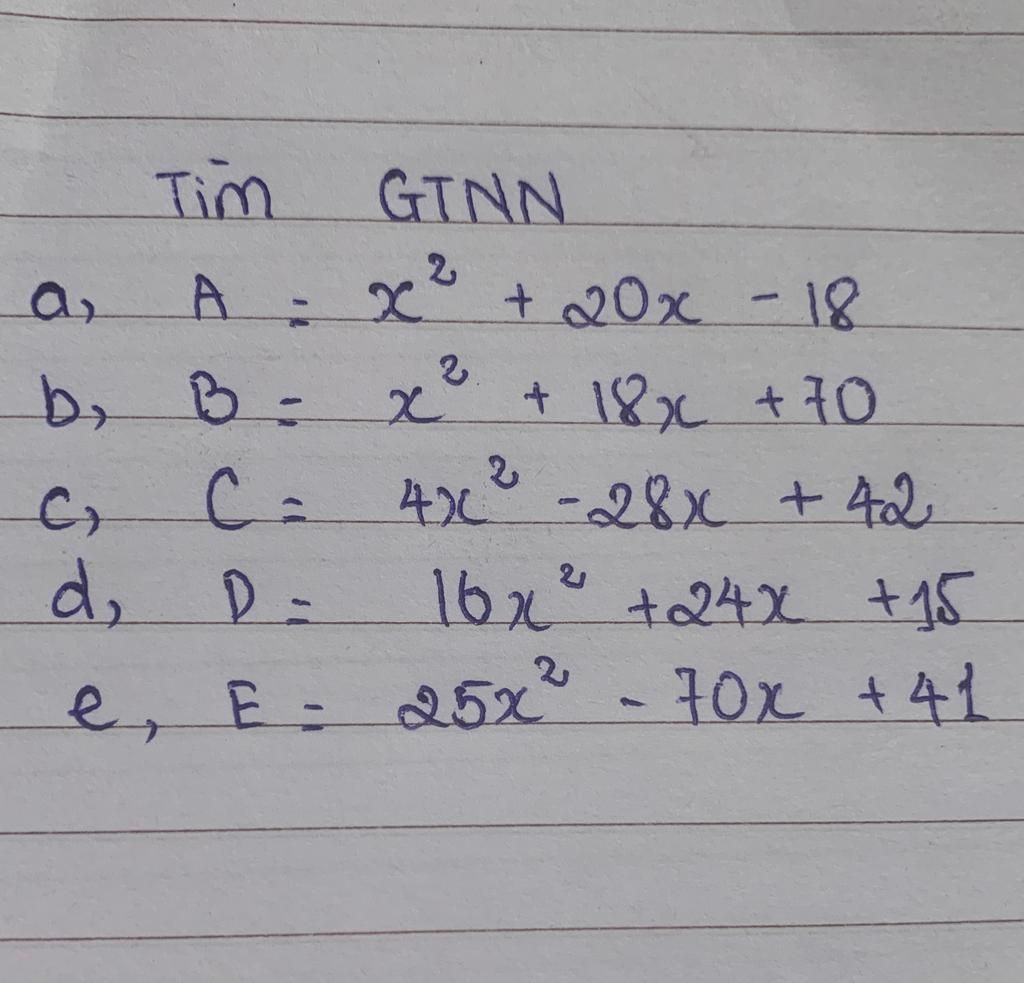 Tìm GTNN
a, A = x² + 20x - 18
b, B = x² + 18x + 70
c, C = 4x² - 28x + 42
d, D = 16x² + 24x + 15
e, E = 25x² - 70x + 41